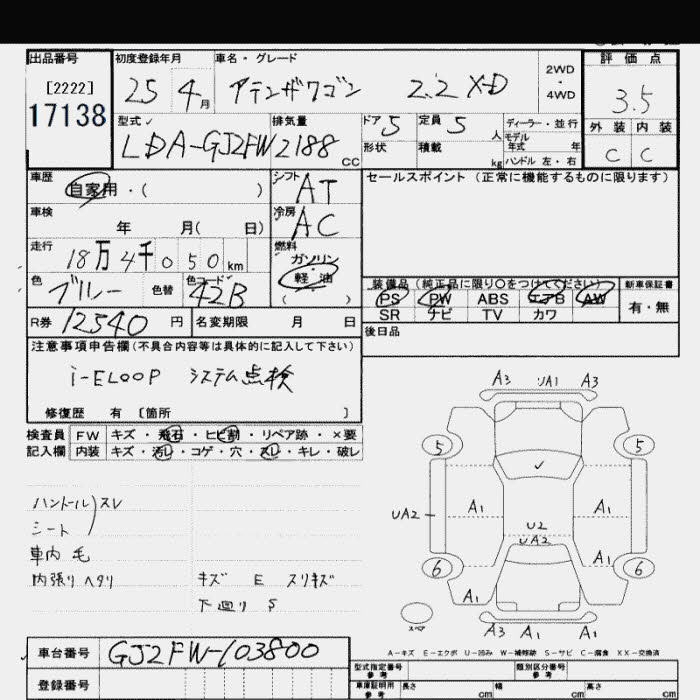 出品番号 初度登録年月 車名・グレード 2WD・4WD 評価点
[2222] 17138 25 4月 アテンザワゴン 2.2 XD 3.5
型式 排気量 ドア 5 定員 5人 ディーラー・並行 外装 内装
LDA-GJ2FW 2188 cc 形状 積載 kg モデル年式 年 ハンドル 左・右 C C
車歴 自家用・( ) シフト AT セールスポイント (正常に機能するものに限ります)
車検 年 月( 日) 冷房 AC
走行 18万4千050km 燃料 ガソリン 軽油 ( )
色 ブルー 色替 色コード 42B 装備品 (純正品に限り○をつけてください) 新車保証書
PS PW ABS エアB AW 有・無
SR ナビ TV カワ
R券 12540円 名変期限 月 日 後日品
注意事項申告欄(不具合内容等は具体的に記入して下さい)
i-ELOOP システム点検
修復歴 有 〔箇所 〕
検査員 FW キズ・飛石・ヒビ割・リペア跡・×要
記入欄 内装 キズ・汚レ・コゲ・穴・スレ・キレ・破レ
ハンドル スレ
シート
車内 毛
内張り ヘタリ キズ E スリキズ
下廻り S
A3 UA1 A3
5 5
✓
UA2 A1 A1
U2
UA2
A1
6 6
A1
スペア
A3 A1 A1
A-キズ E-エクボ U-凹み W-補修跡 S-サビ C-腐食 XX-交換済
車台番号 GJ2FW-103800 型式指定番号 参考 類別区分番号 参考
登録番号 車庫証明用 参考 長さ cm 幅 cm 高さ cm